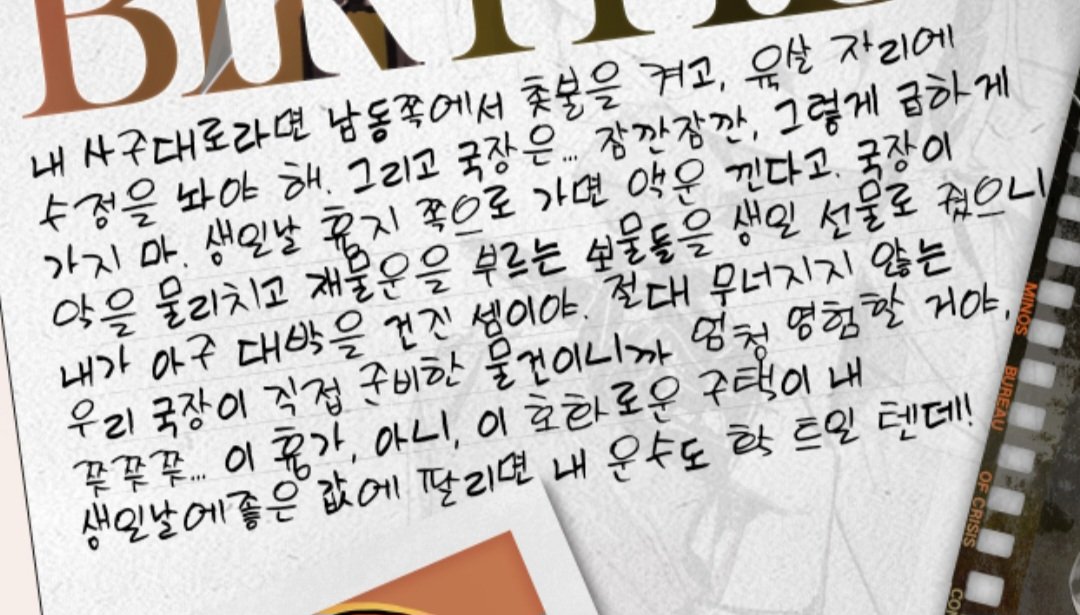 내 사구대로라면 남동쪽에서 촛불을 켜고, 육살 자리에
수정을 놔야 해. 그리고 국장은... 잠깐잠깐, 그렇게 급하게
가지 마. 생일날 흉지 쪽으로 가면 액운 낀다고. 국장이
악을 물리치고 재물운을 부르는 보물들을 생일 선물로 줬으니
내가 아구 대박을 건진 셈이야. 절대 무너지지 않는
우리 국장이 직접 준비한 물건이니까 엄청 영험할 거야.
쯧쯧쯧... 이 흉가, 아니, 이 호화로운 구택이 내
생일날에 좋은 값에 팔리면 내 운수도 확 트일 텐데!
MINOS BUREAU OF CRISIS